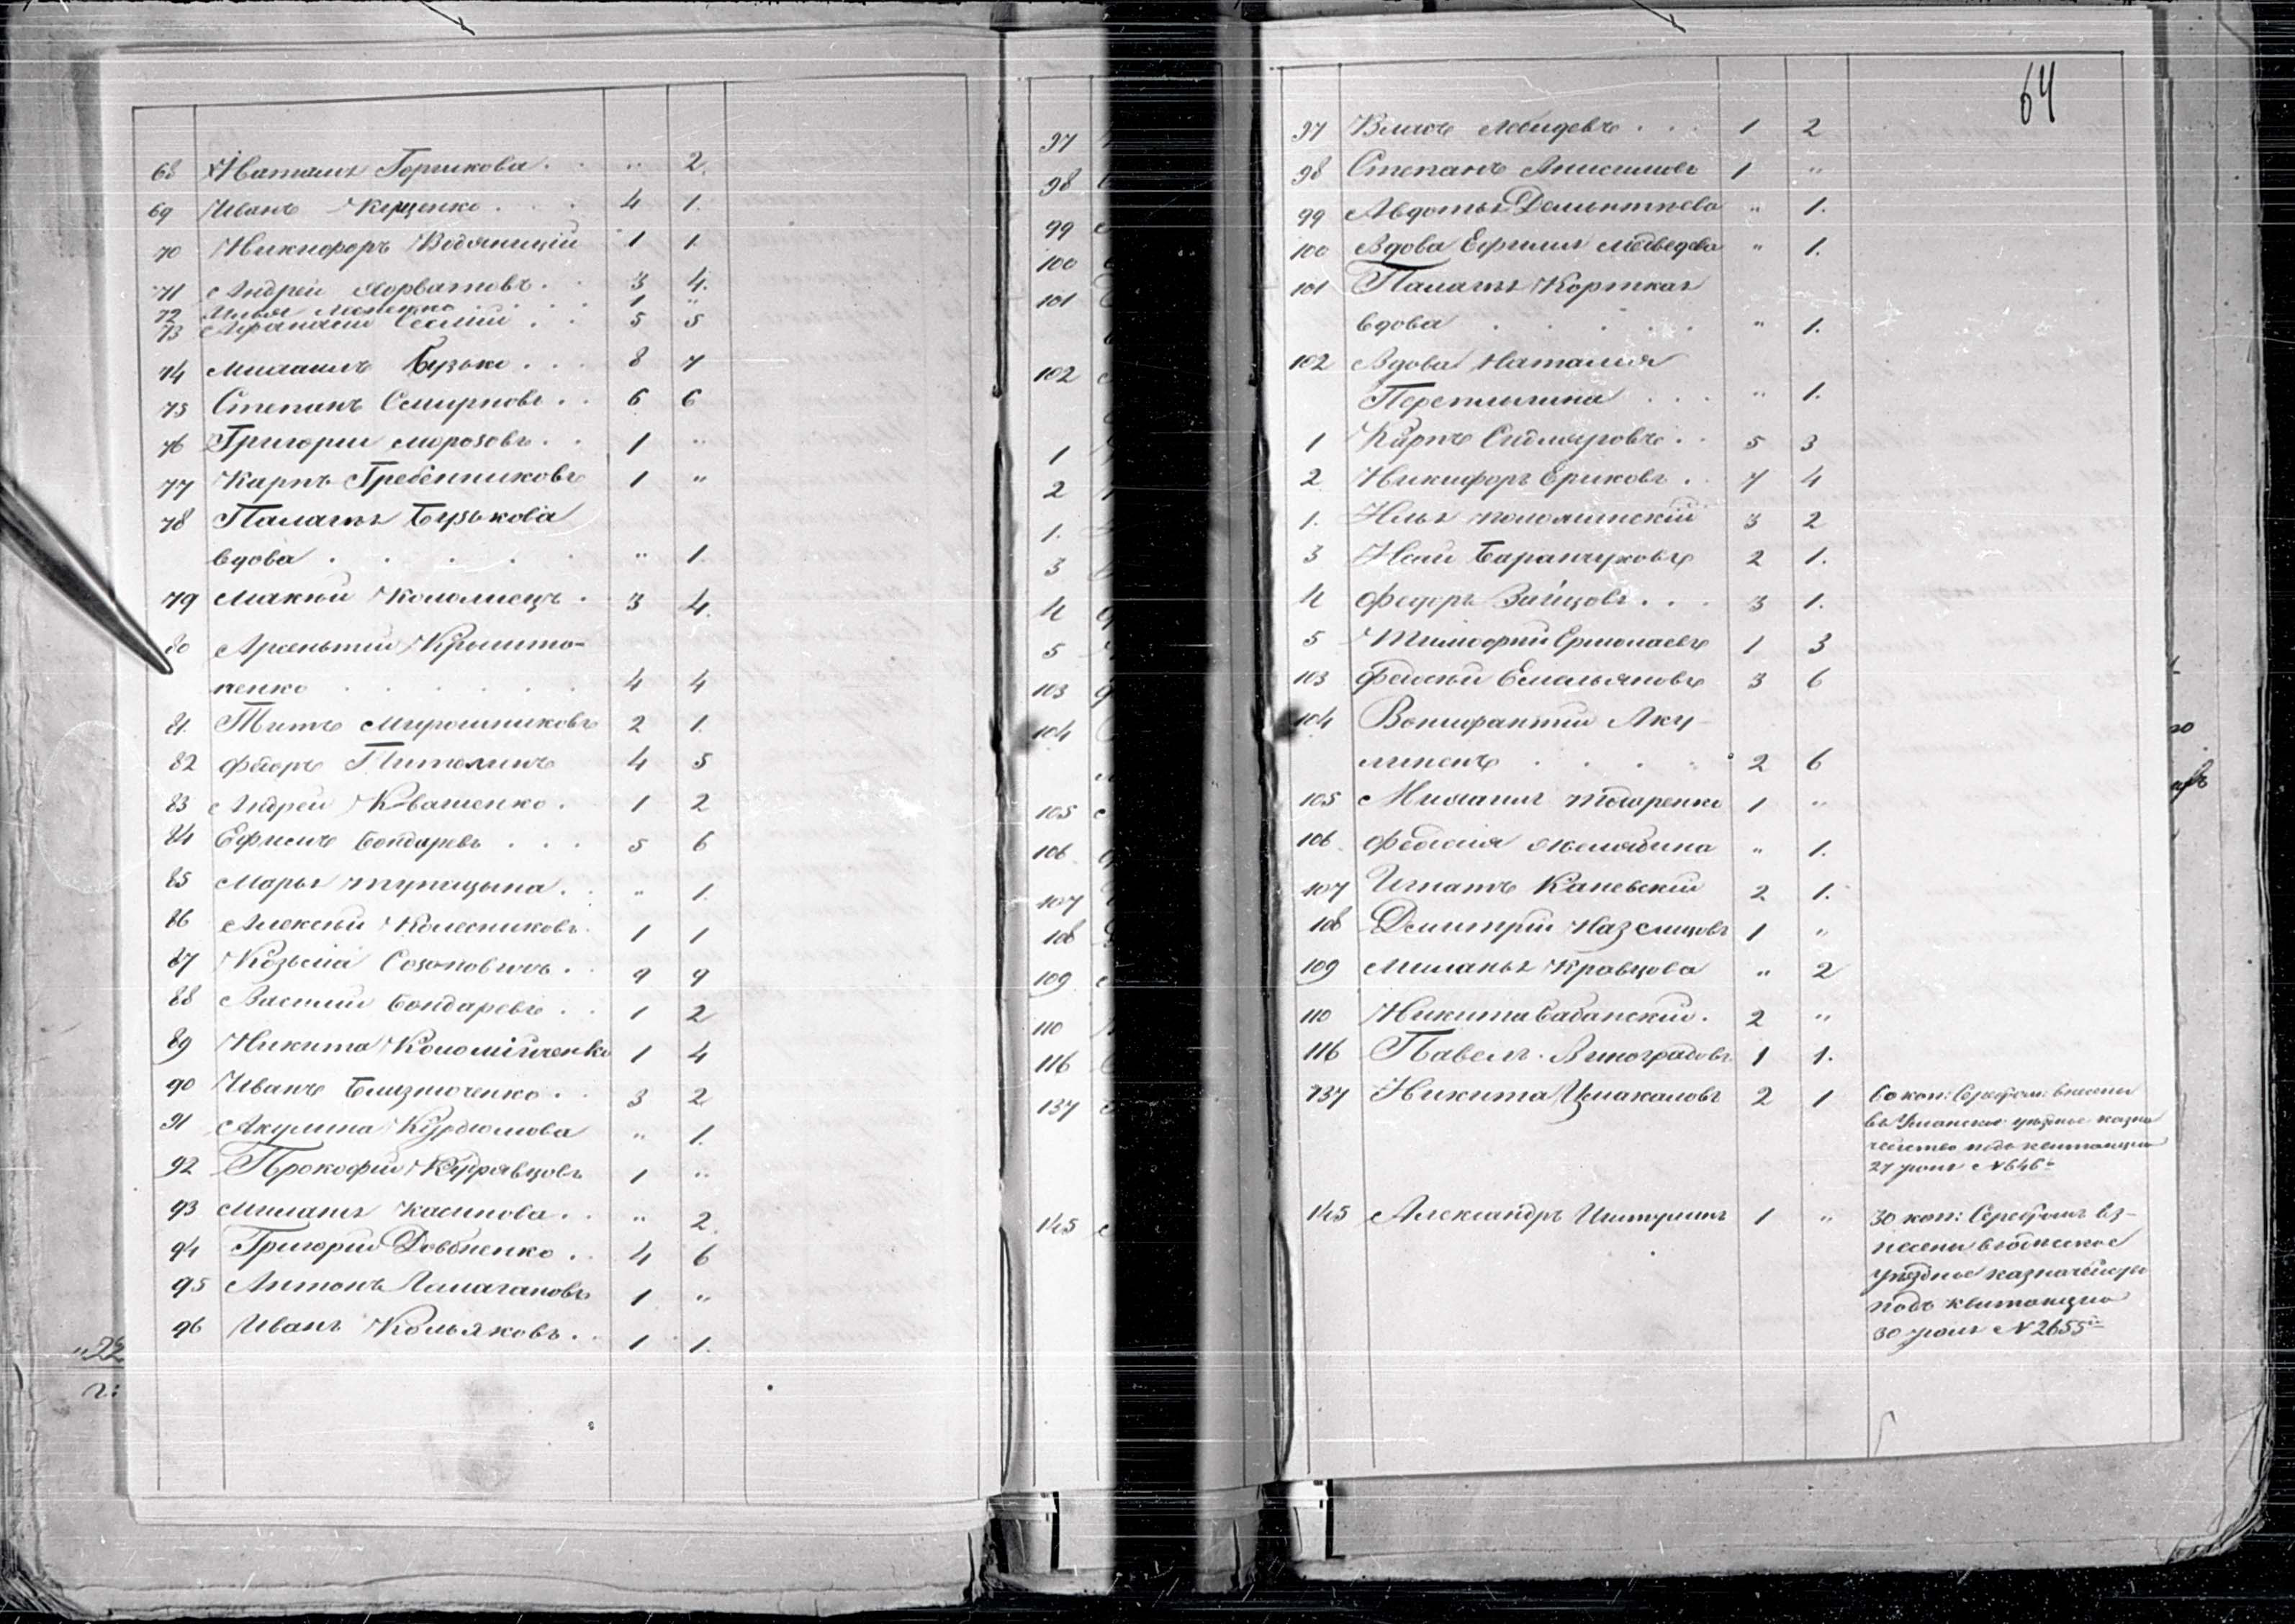 68 Наталья Горшкова . . " 2.
69 Иванъ Кущенко . . . 4 1.
70 Никифоръ Водяницкій 1 1
71 Андрей Хорватовъ . . 3 4.
72 Илья . . 1 "
73 Афанасій . . 5 5
74 Михаилъ Бузько . . . 8 7
75 Степанъ Смирновъ . . 6 6
76 Григорій Морозовъ . . 1 "
77 Карпъ Гребенниковъ 1 "
78 Палагея Бузькова
вдова . . . . . " 1.
79 Макѣй Коломіецъ . 3 4.
80 Арсентій Крышто-
пенко . . . . . . 4 4
81. Титъ Мирошниковъ 2 1.
82 Федоръ Питолинъ 4 5
83 Андрей Квашенко . 1 2
84 Ефимъ Бондаревъ . . . 5 6
85 Марья Тупицына . . " 1.
86 Алексѣй Колесниковъ . 1 1
87 Козьма Созоновичъ . . 9 9
88 Василій Бондаревъ . . 1 2
89 Никита Коломійченко 1 4
90 Иванъ Близнюченко . . 3 2
91 Акулина Курдюмова " 1.
92 Прокофій Кудрявцовъ 1 "
93 Миланья Касинова . . " 2.
94 Григорій Довбненко . . 4 6
95 Антонъ Ламагановъ 1 "
96 Иванъ Кольяковъ . . 1 1.
64
97 Власъ Лебедевъ . . . 1 2
98 Степанъ Анисимовъ 1 "
99 Авдотья Дементьева " 1.
100 Вдова Ефимія Медведева " 1.
101 Палагея Корткая
вдова . . . . . " 1.
102 Вдова Наталія
Перетигина . . . " 1.
1 Карпъ Сидляровъ . . 5 3
2. Никифоръ Ериковъ . . 7 4
1. Илья Коломинскій 3 2
3 Исай Баранчуковъ 2 1.
4 Федоръ Зайцовъ . . . 3 1.
5 Тимофей Ермолаевъ 1 3
103 Федосѣй Емельяновъ 3 6
104 Вонифантій Аку-
лининъ . . . . . 2 6
105 Михаилъ Токаренко 1 "
106 Федосія Желябина " 1.
107 Игнатъ Каневскій 2 1.
108 ДмитрійНаземцовъ 1 "
109 Миланья Кравцова " 2
110 Никита Бабанскій . 2 "
116 Павелъ Виноградовъ 1 1.
137 Никита Цмакаловъ 2 1 60 коп: Серебром: внесены
въ Уманское уѣздное казна
чейство подъ квитанцію
27 юля N 646ю
145 Александръ Шитуринъ 1 " 30 коп: Серебромъ вз-
несены въ Одесское
уѣздное казначейство
подъ квитанцію
30 юля N 2655ю